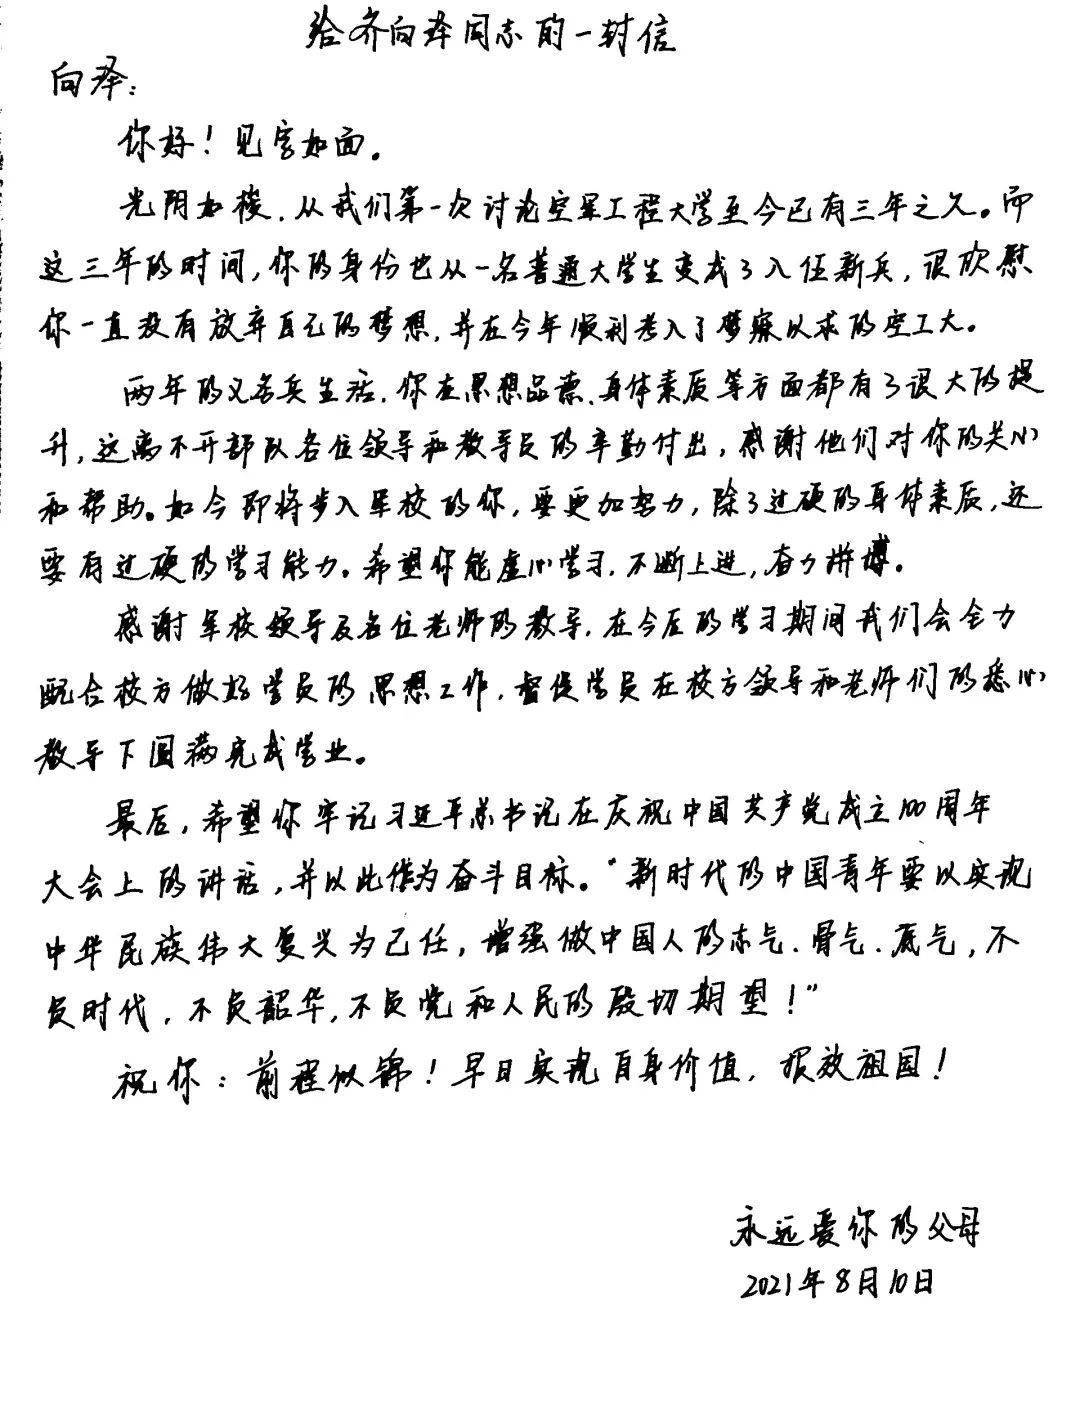 给齐向泽同志的一封信
向泽：
你好！见字如面。
光阴如梭，从我们第一次讨论空军工程大学至今已有三年之久。而
这三年的时间，你的身份也从一名普通大学生变成了入伍新兵，很欣慰
你一直没有放弃自己的梦想，并在今年顺利考入了梦寐以求的空工大。
两年的义务兵生活，你在思想品德、身体素质等方面都有了很大的提
升，这离不开部队各位领导和教导员的辛勤付出，感谢他们对你的关心
和帮助。如今即将步入军校的你，要更加努力，除了过硬的身体素质，还
要有过硬的学习能力。希望你能虚心学习，不断上进，奋力拼搏。
感谢军校领导及各位老师的教导，在今后的学习期间我们会全力
配合校方做好学员的思想工作，督促学员在校方领导和老师们的悉心
教导下圆满完成学业。
最后，希望你牢记习近平总书记在庆祝中国共产党成立100周年
大会上的讲话，并以此作为奋斗目标。“新时代的中国青年要以实现
中华民族伟大复兴为己任，增强做中国人的志气、骨气、底气，不
负时代，不负韶华，不负党和人民的殷切期望！”
祝你：前程似锦！早日实现自身价值，报效祖国！
永远爱你的父母
2021年8月10日